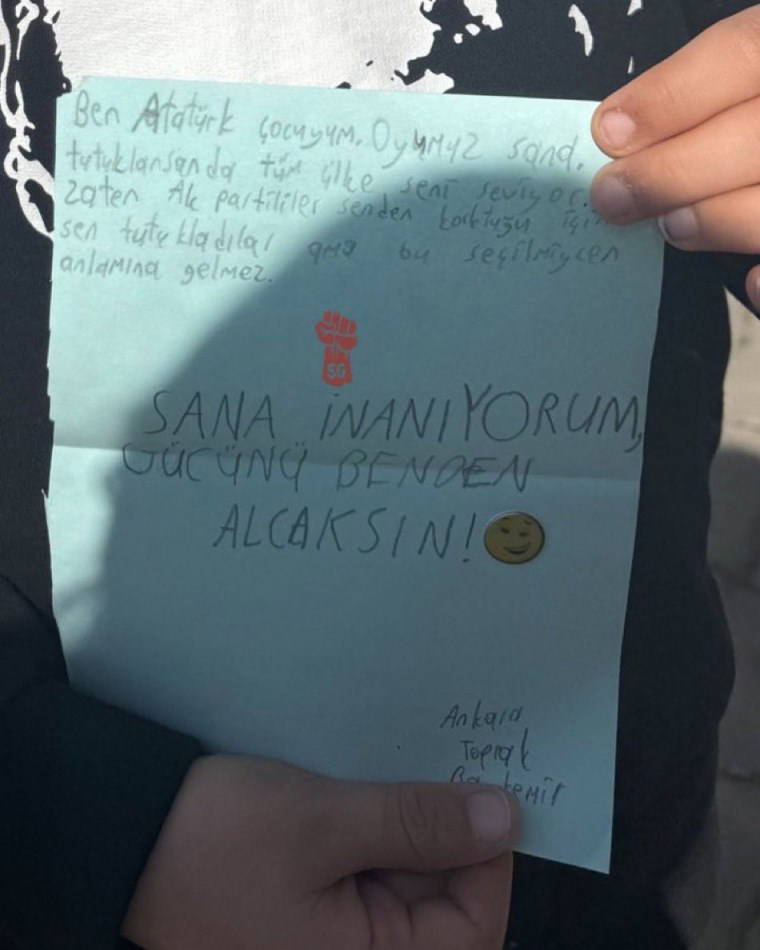 Ben Atatürk çocuyum. Oyumuz sana.
tutuklansanda tüm ülke seni seviyor.
zaten Ak partililer senden korktuğu için
sen tutukladılar ama bu seçilmiycen
anlamına gelmez.
SG
SANA İNANIYORUM,
GÜCÜNÜ BENDEN
ALCAKSIN!
Ankara
Toprak